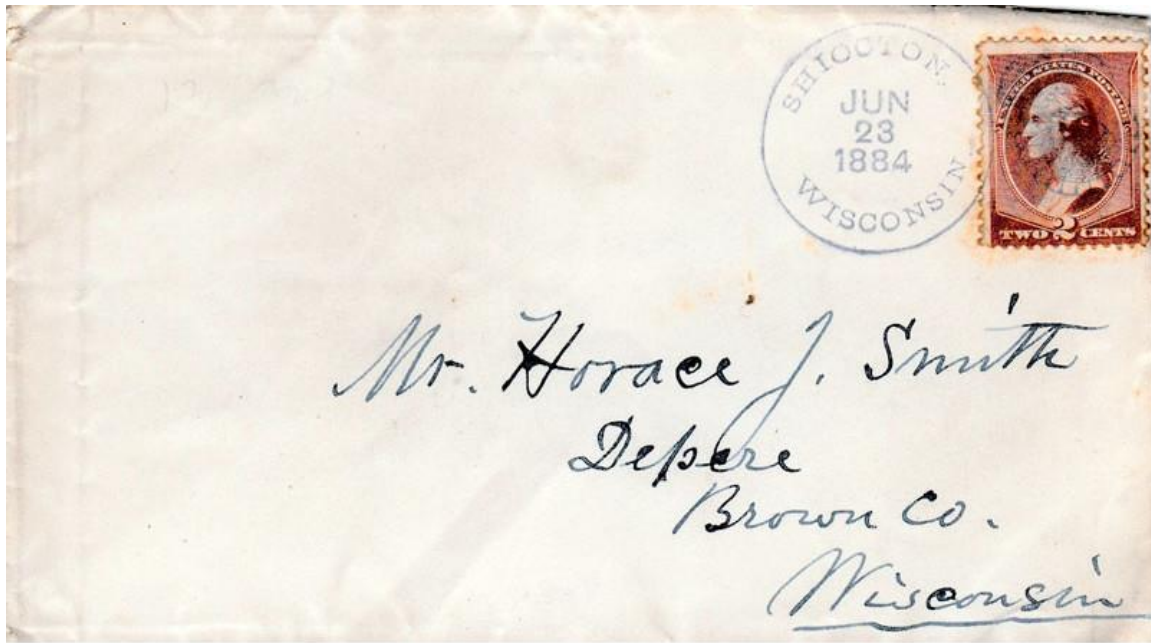 SHIOCTON,
JUN
23
1884
WISCONSIN
UNITED STATES POSTAGE
TWO 2 CENTS
Mr. Horace J. Smith
Depere
Brown Co.
Wisconsin